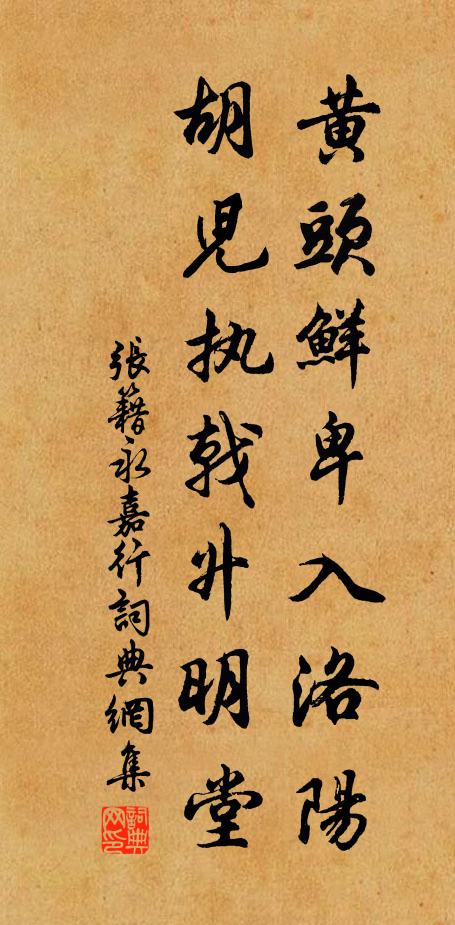 黄頭鮮卑入洛陽
胡児执戟升明堂
張籍永嘉行詞典網集
詞典网印